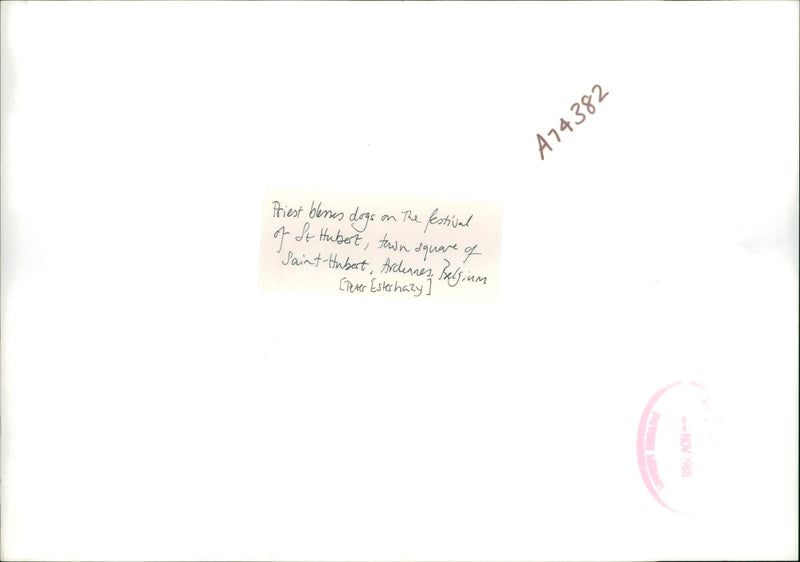 A74382
Priest blesses dogs on the festival
of St Hubert, town square of
Saint-Hubert, Ardennes, Belgium
[Peter Esterhazy]
PICTURE LIBRARY
NOV 1988